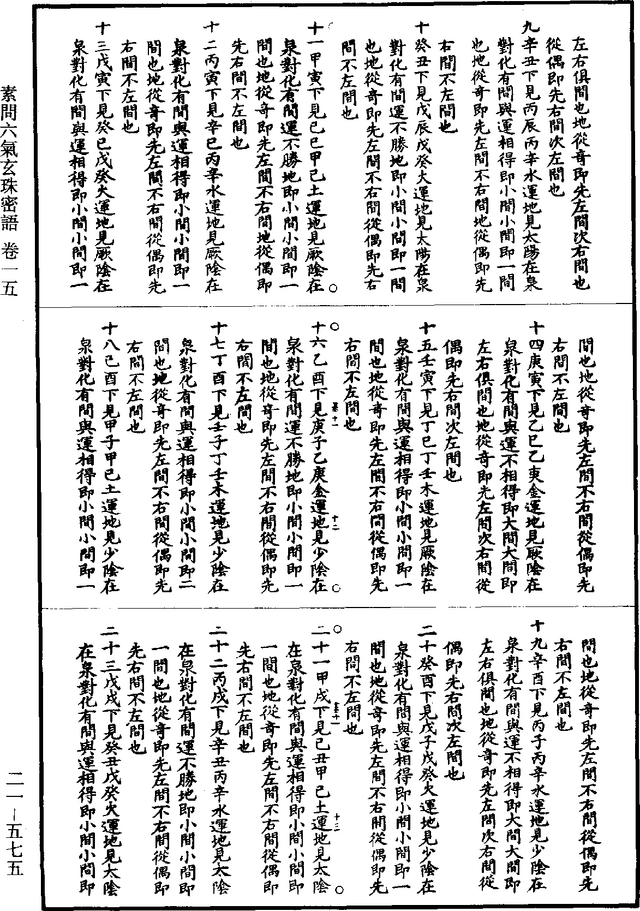 素問六氣玄珠密語 卷一五
二一—五七五
左右俱間也地從奇即先左間次右間也
從偶即先右間次左間也
九辛丑下見丙辰丙辛水運地見太陽在泉
對化有間與運相得即小間小間即一間
也地從奇即先左間不右間地從偶即先
右間不左間也
十癸丑下見戊辰戊癸火運地見太陽在泉
對化有間運不勝地即小間小間即一間
也地從奇即先左間不右間從偶即先右
間不左間也
十一甲寅下見己巳甲己土運地見厥陰在
泉對化有間運不勝地即小間小間即一
間也地從奇即先左間不右間地從偶即
先右間不左間也
十二丙寅下見辛巳丙辛水運地見厥陰在
泉對化有間與運相得即小間小間即一
間也地從奇即先左間不右間從偶即先
右間不左間也
十三戊寅下見癸巳戊癸火運地見厥陰在
泉對化有間與運相得即小間小間即一
間也地從奇即先左間不右間從偶即先
右間不左間也
十四庚寅下見乙巳乙庚金運地見厥陰在
泉對化有間與運不相得即大間大間即
左右俱間也地從奇即先左間次右間從
偶即先右間次左間也
十五壬寅下見丁巳丁壬木運地見厥陰在
泉對化有間與運相得即小間小間即一
間也地從奇即先左間不右間從偶即先
右間不左間也
十六乙酉下見庚子乙庚金運地見少陰在
泉對化有間運不勝地即小間小間即一
間也地從奇即先左間不右間從偶即先
右間不左間也
十七丁酉下見壬子丁壬木運地見少陰在
泉對化有間與運相得即小間小間即二
間也地從奇即先左間不右間從偶即先
右間不左間也
十八己酉下見甲子甲己土運地見少陰在
泉對化有間與運相得即小間小間即一
間也地從奇即先左間不右間從偶即先
右間不左間也
十九辛酉下見丙子丙辛水運地見少陰在
泉對化有間與運不相得即大間大間即
左右俱間也地從奇即先左間次右間從
偶即先右間次左間也
二十癸酉下見戊子戊癸火運地見少陰在
泉對化有間與運相得即小間小間即一
間也地從奇即先左間不右間從偶即先
右間不左間也
二十一甲戌下見己丑甲己土運地見太陰
在泉對化有間與運相得即小間小間即
一間也地從奇即先左間不右間從偶即
先右間不左間也
二十二丙戌下見辛丑丙辛水運地見太陰
在泉對化有間運不勝地即小間小間即
一間也地從奇即先左間不右間從偶即
先右間不左間也
二十三戊戌下見癸丑戊癸火運地見太陰
在泉對化有間與運相得即小間小間即